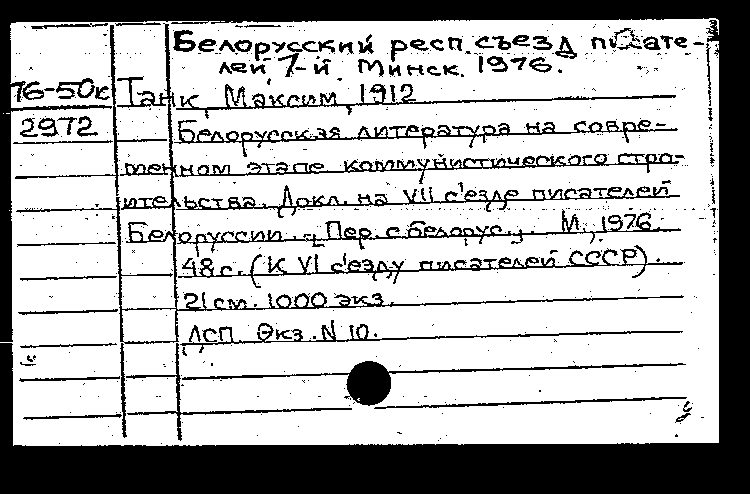 Белорусский респ. съезд писате-
лей, 7-й. Минск. 1976.
76-50к Танк, Максим, 1912
2972 Белорусская литература на совре-
менном этапе коммунистического стро-
ительства. Докл. на VII с'езде писателей
Белоруссии. [Пер. с белорус.]. М., 1976.
48 с. (К VI с'езду писателей СССР).
21 см. 1000 экз.
ДСП Экз. N 10.